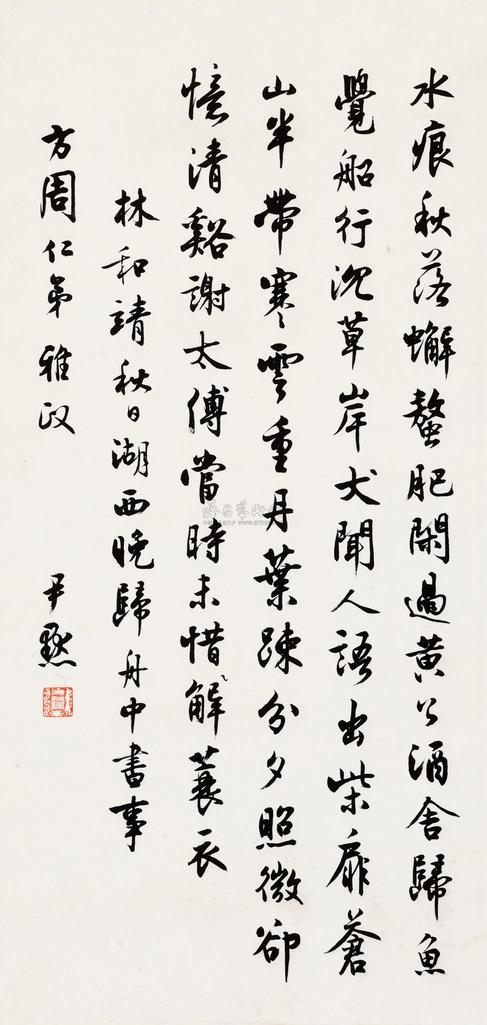 水痕秋落蠏螯肥閑過黃公酒舍歸魚
覺船行沉草岸犬聞人語出柴扉蒼
山半帶寒雲重丹葉踈分夕照微卻
憶清谿謝太傅當時未惜解蓑衣
林和靖秋日湖西晚歸舟中書事
方周仁弟雅政
尹默